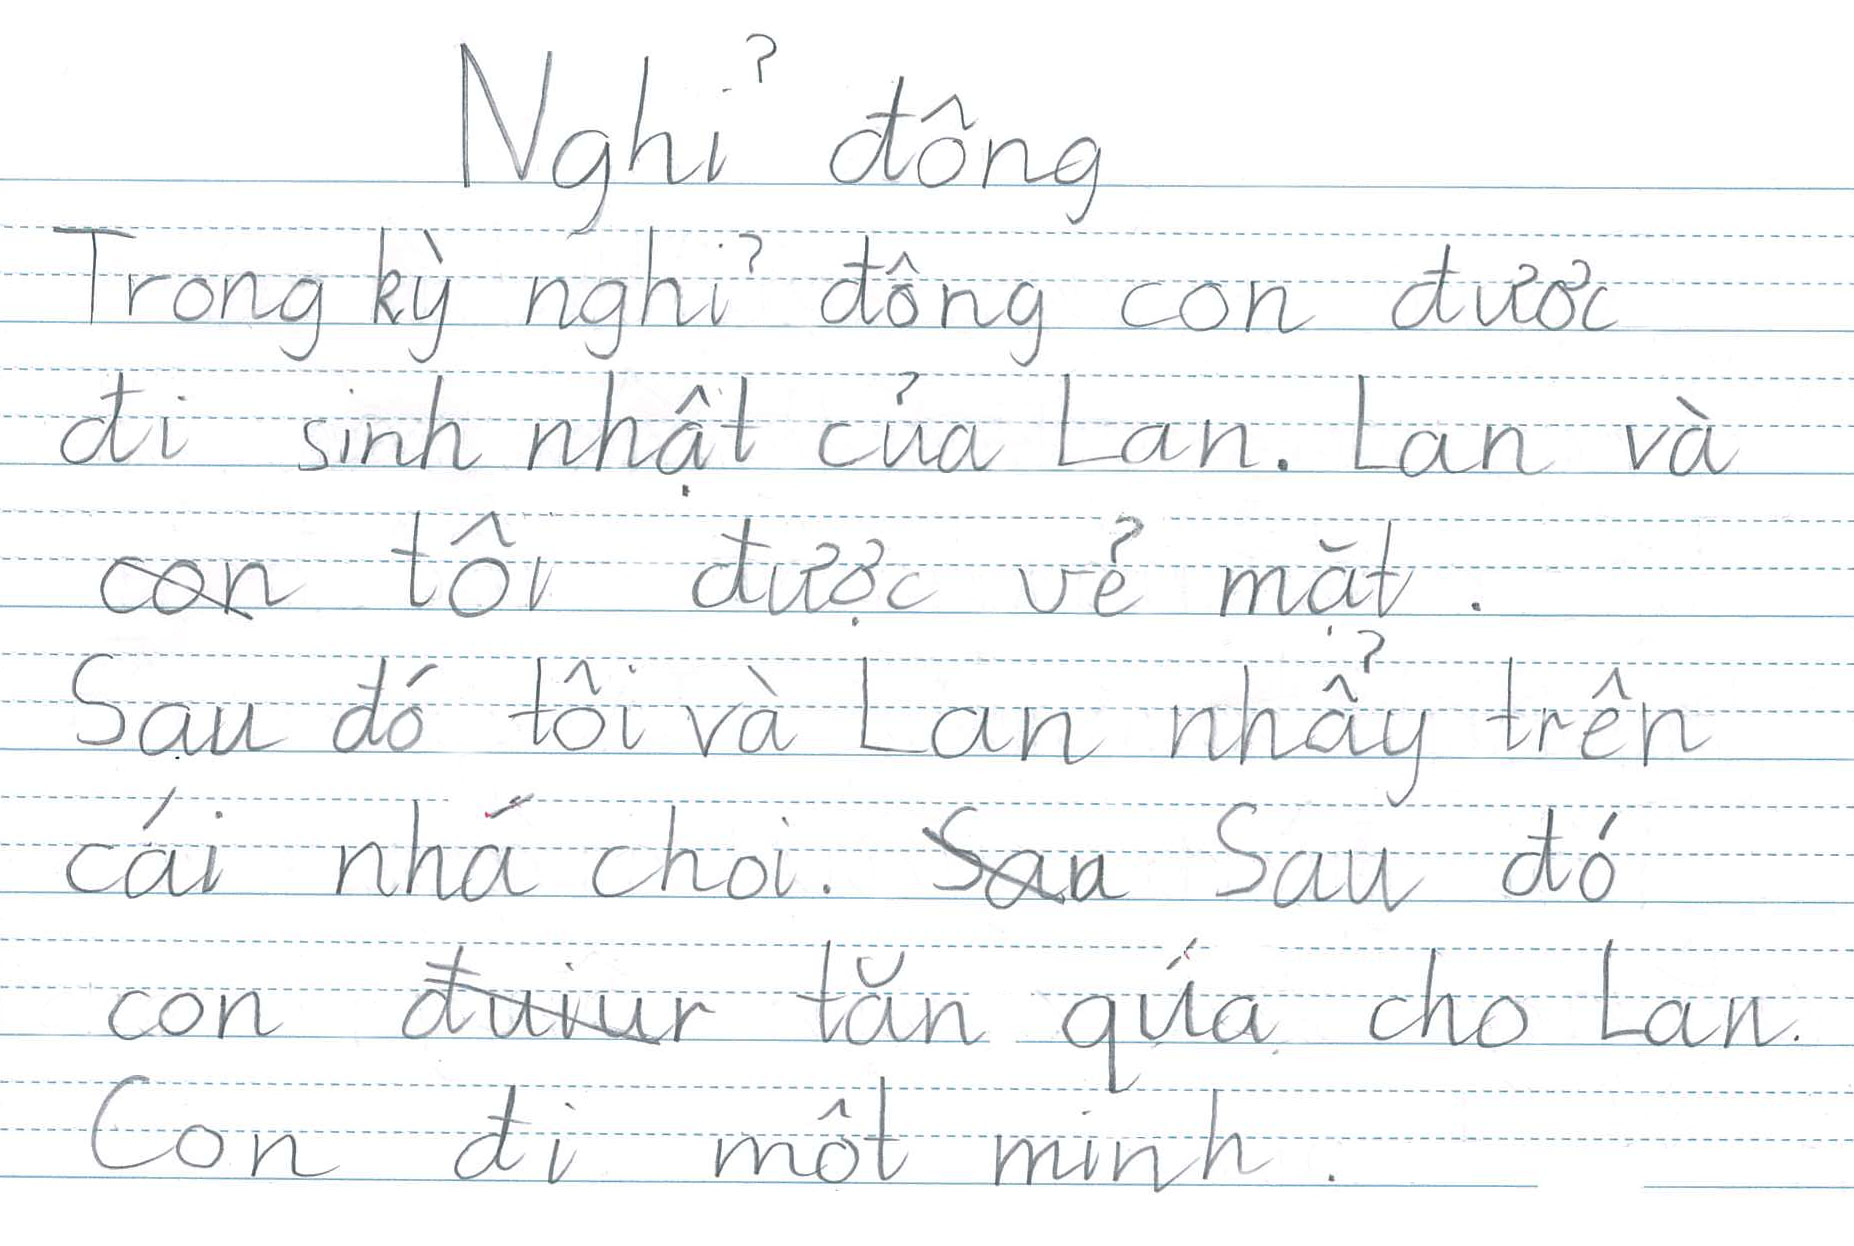 Nghỉ đông
Trong kỳ nghỉ đông con đươc
đi sinh nhật của Lan. Lan và
con tôi được vẻ măt.
Sau đó tôi và Lan nhẩy trên
cái nhá choi. Sau Sau đó
con tăn qúa cho Lan.
Con đi môt minh.